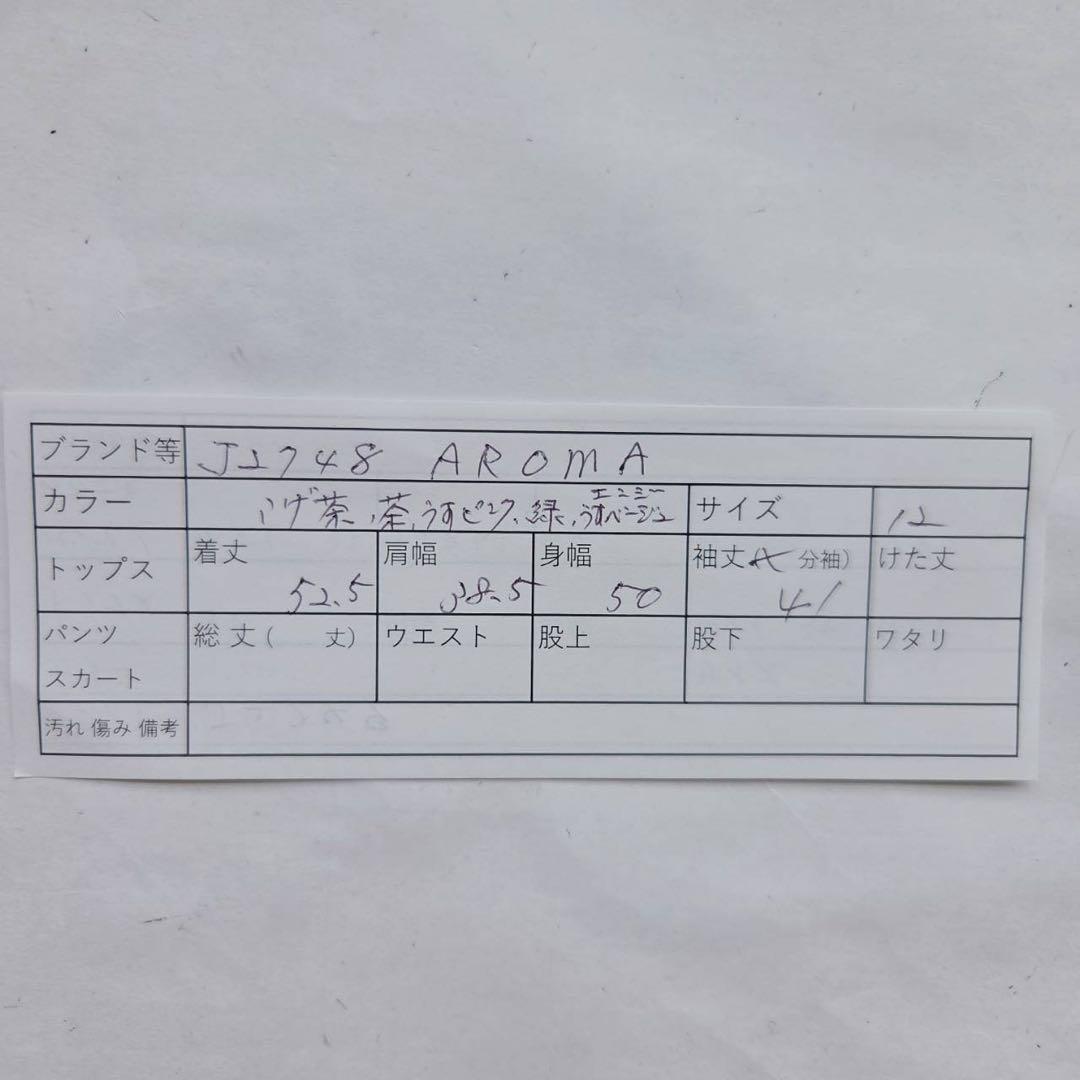 ブランド等 J2748 AROMA
カラー こげ茶、茶、うすピンク、緑、エンジー うすベージュ サイズ 12
トップス 着丈 52.5 肩幅 38.5 身幅 50 袖丈( 分袖) 41 けた丈
パンツ スカート 総丈( 丈) ウエスト 股上 股下 ワタリ
汚れ 傷み 備考